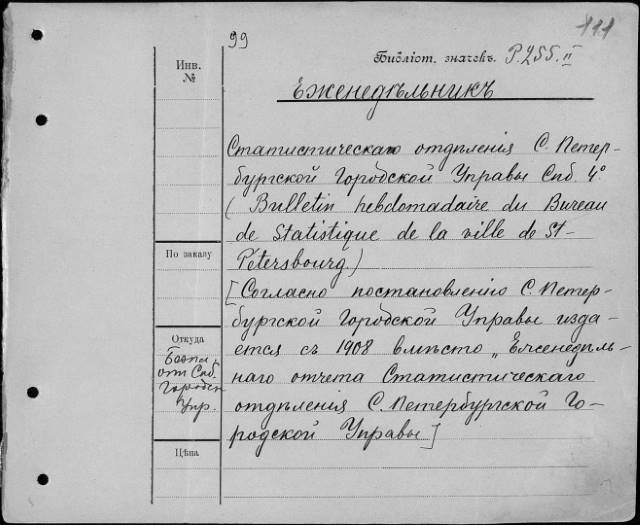 99
111
Библіот. значекъ. P.255.II
Инв.
№
Еженедѣльникъ
Статистическаго отдѣленія С. Петер-
бургской Городской Управы Спб. 4º
(Bulletin hebdomadaire du Bureau
de Statistique de la ville de St-
Pétersbourg.)
[Согласно постановленію С. Петер-
бургской Городской Управы изда-
ется съ 1908 вмѣсто „Еженедѣль-
наго отчета Статистическаго
отдѣленія С. Петербургской Го-
родской Управы]
По заказу
Откуда
Безпл.
от Спб.
Городск.
Упр.
Цѣна